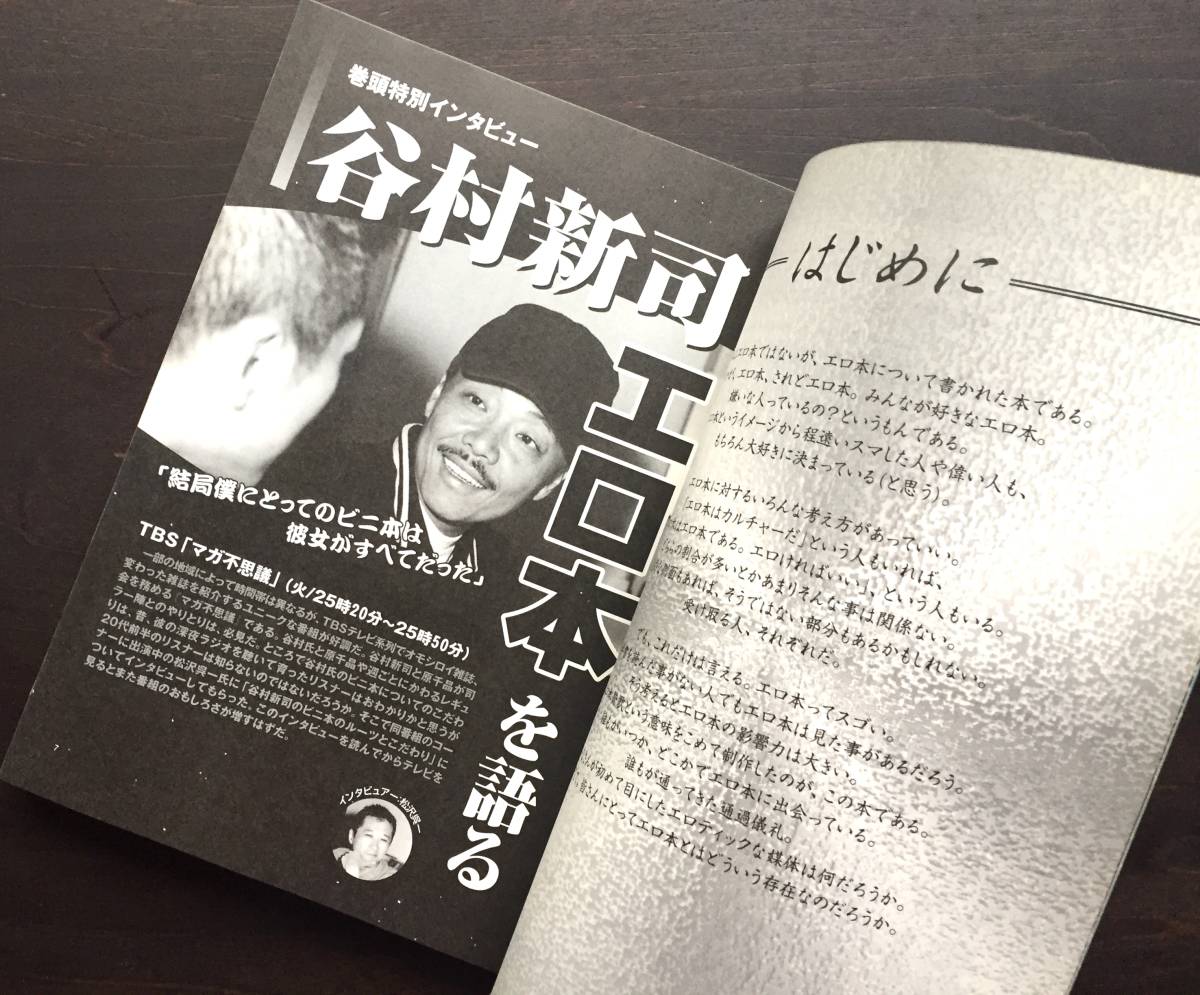 巻頭特別インタビュー
谷村新司
エロ本
を語る
「結局僕にとってのビニ本は
彼女がすべてだった」
TBS「マガ不思議」(火/25時20分〜25時50分)
一部の地域によって時間帯は異なるが、TBSテレビ系列でオモシロイ雑誌、
変わった雑誌を紹介するユニークな番組が好調だ。谷村新司と原千晶が司
会を務める「マガ不思議」である。谷村氏と原千晶や週ごとにかわるレギュ
ラー陣とのやりとりは、必見だ。ところで谷村氏のビニ本についてのこだわ
りは、昔、彼の深夜ラジオを聴いて育ったリスナーはおわかりかと思うが
20代前半のリスナーは知らないのではないだろうか。そこで同番組のコー
ナーに出演中の松沢呉一氏に「谷村新司のビニ本のルーツとこだわり」に
ついてインタビューしてもらった。このインタビューを読んでからテレビを
見るとまた番組のおもしろさが増すはずだ。
7
インタビュアー:松沢呉一
はじめに
エロ本ではないが、エロ本について書かれた本である。
エロ本、されどエロ本。みんなが好きなエロ本。
嫌いな人っているの?というもんである。
というイメージから程遠いスマした人や偉い人も、
もちろん大好きに決まっている(と思う)。
エロ本に対するいろんな考え方があっていい。
「エロ本はカルチャーだ」という人もいれば、
はエロ本である。エロければいい」、という人もいる。
の割合が多いとかあまりそんな事は関係ない。
面もあれば、そうではない部分もあるかもしれない。
受け取る人、それぞれだ。
でも、これだけは言える。エロ本ってスゴい。
んだ事がない人でもエロ本は見た事があるだろう。
そう考えるとエロ本の影響力は大きい。
という意味をこめて制作したのが、この本である。
もが、いつか、どこかでエロ本に出会っている。
誰もが通ってきた通過儀礼。
さんが初めて目にしたエロティックな媒体は何だろうか。
皆さんにとってエロ本とはどういう存在なのだろうか。